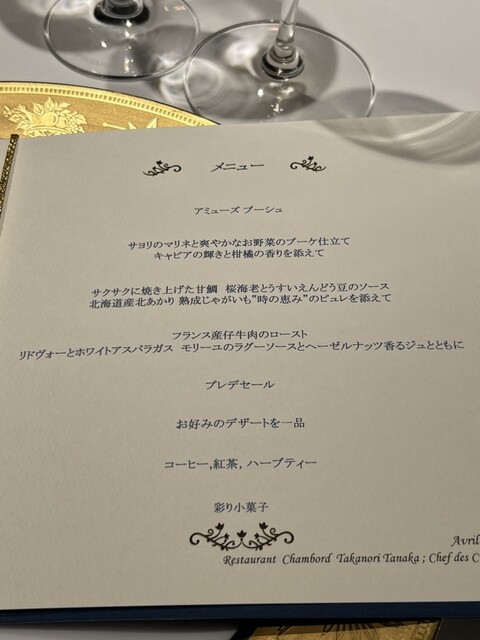 メニュー
アミューズ ブーシュ
サヨリのマリネと爽やかなお野菜のブーケ仕立て
キャビアの輝きと柑橘の香りを添えて
サクサクに焼き上げた甘鯛 桜海老とうすいえんどう豆のソース
北海道産北あかり 熟成じゃがいも"時の恵み"のピュレを添えて
フランス産仔牛肉のロースト
リドヴォーとホワイトアスパラガス モリーユのラグーソースとヘーゼルナッツ香るジュとともに
プレデセール
お好みのデザートを一品
コーヒー,紅茶, ハーブティー
彩り小菓子
Avril
Restaurant Chambord Takanori Tanaka ; Chef des C